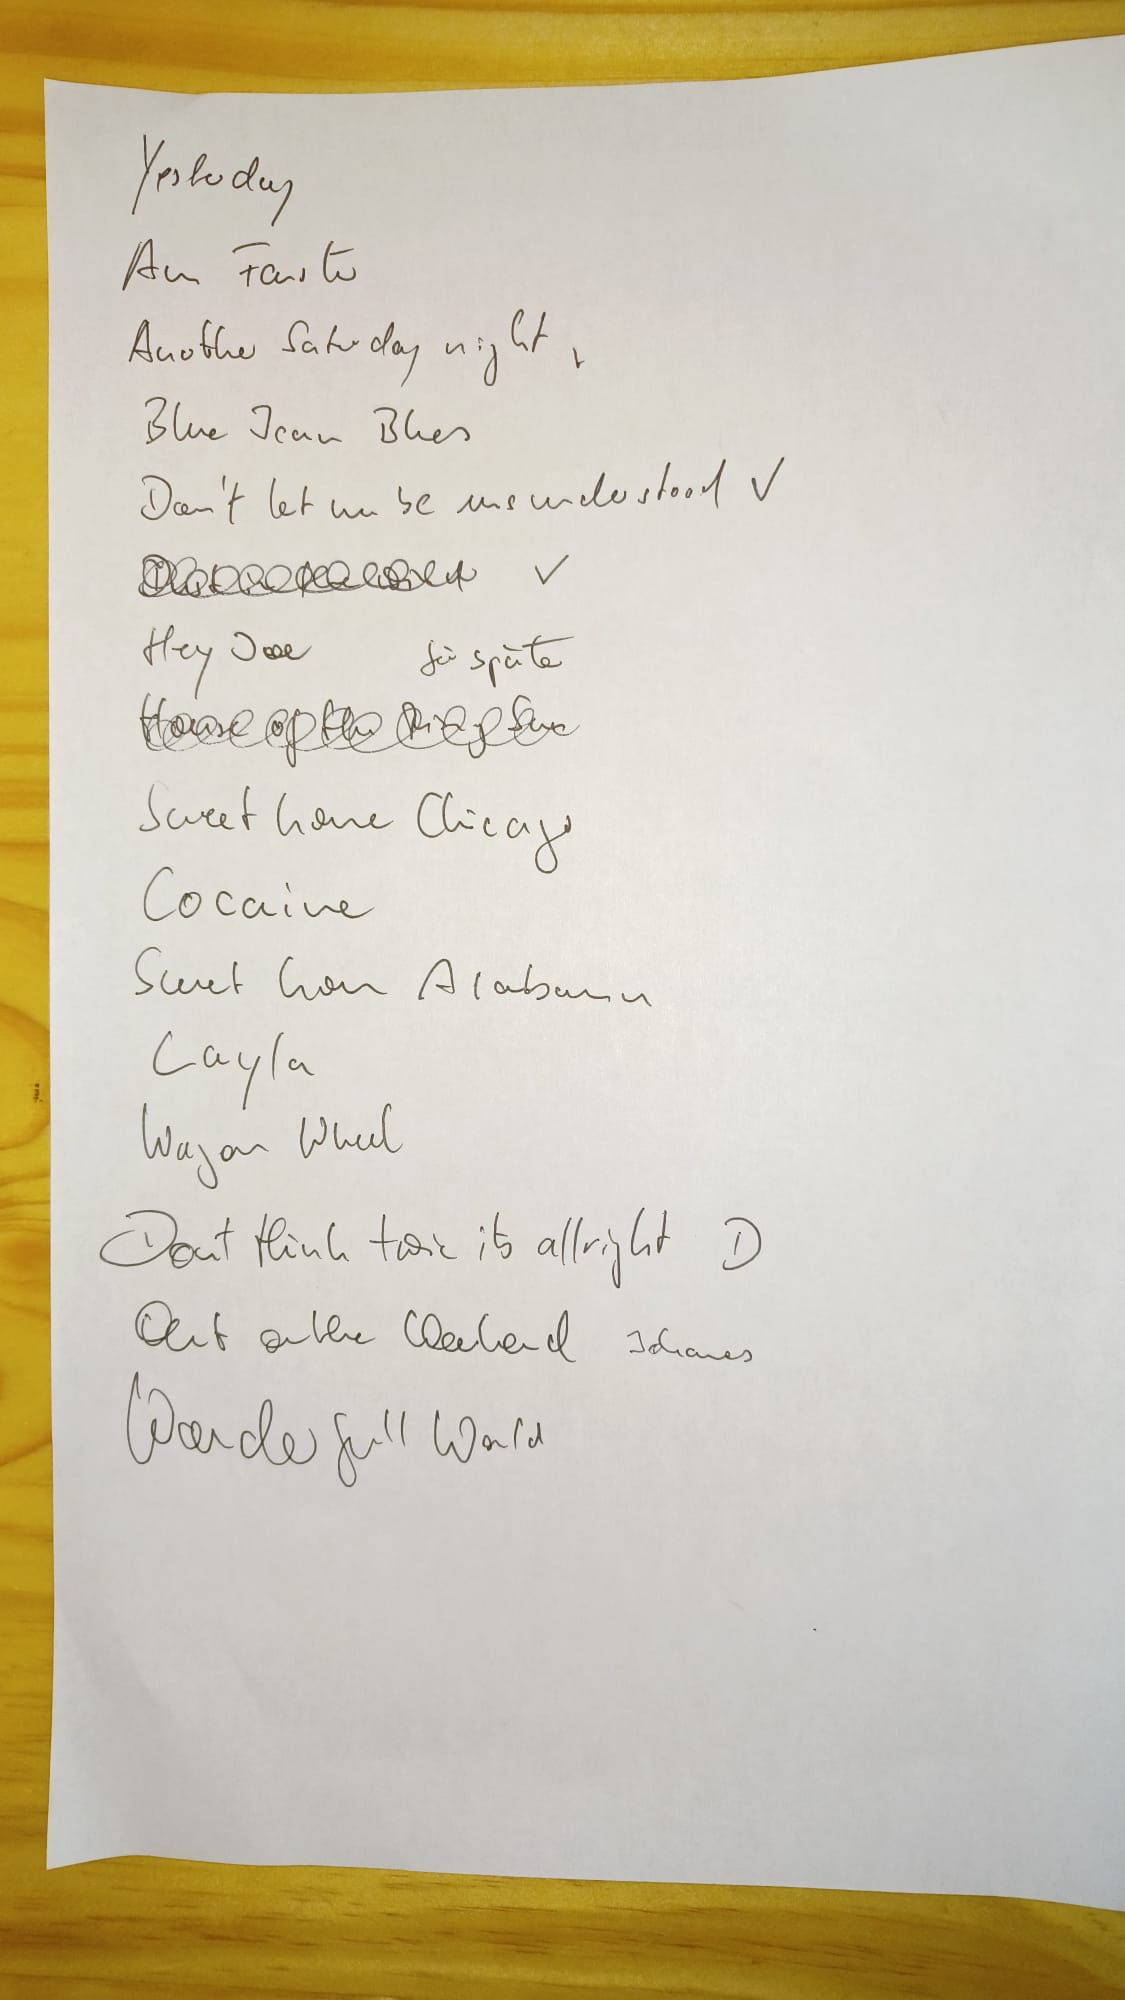 Yesterday
Am Fenster
Another Saturday night
Blue Jean Blues
Don't let me be misunderstood ✓
✓
Hey Joe für später
House of the Rising Sun
Sweet home Chicago
Cocaine
Sweet home Alabama
Layla
Wagon Wheel
Dont think twice its allright D
Out on the Weekend
Wonderfull World